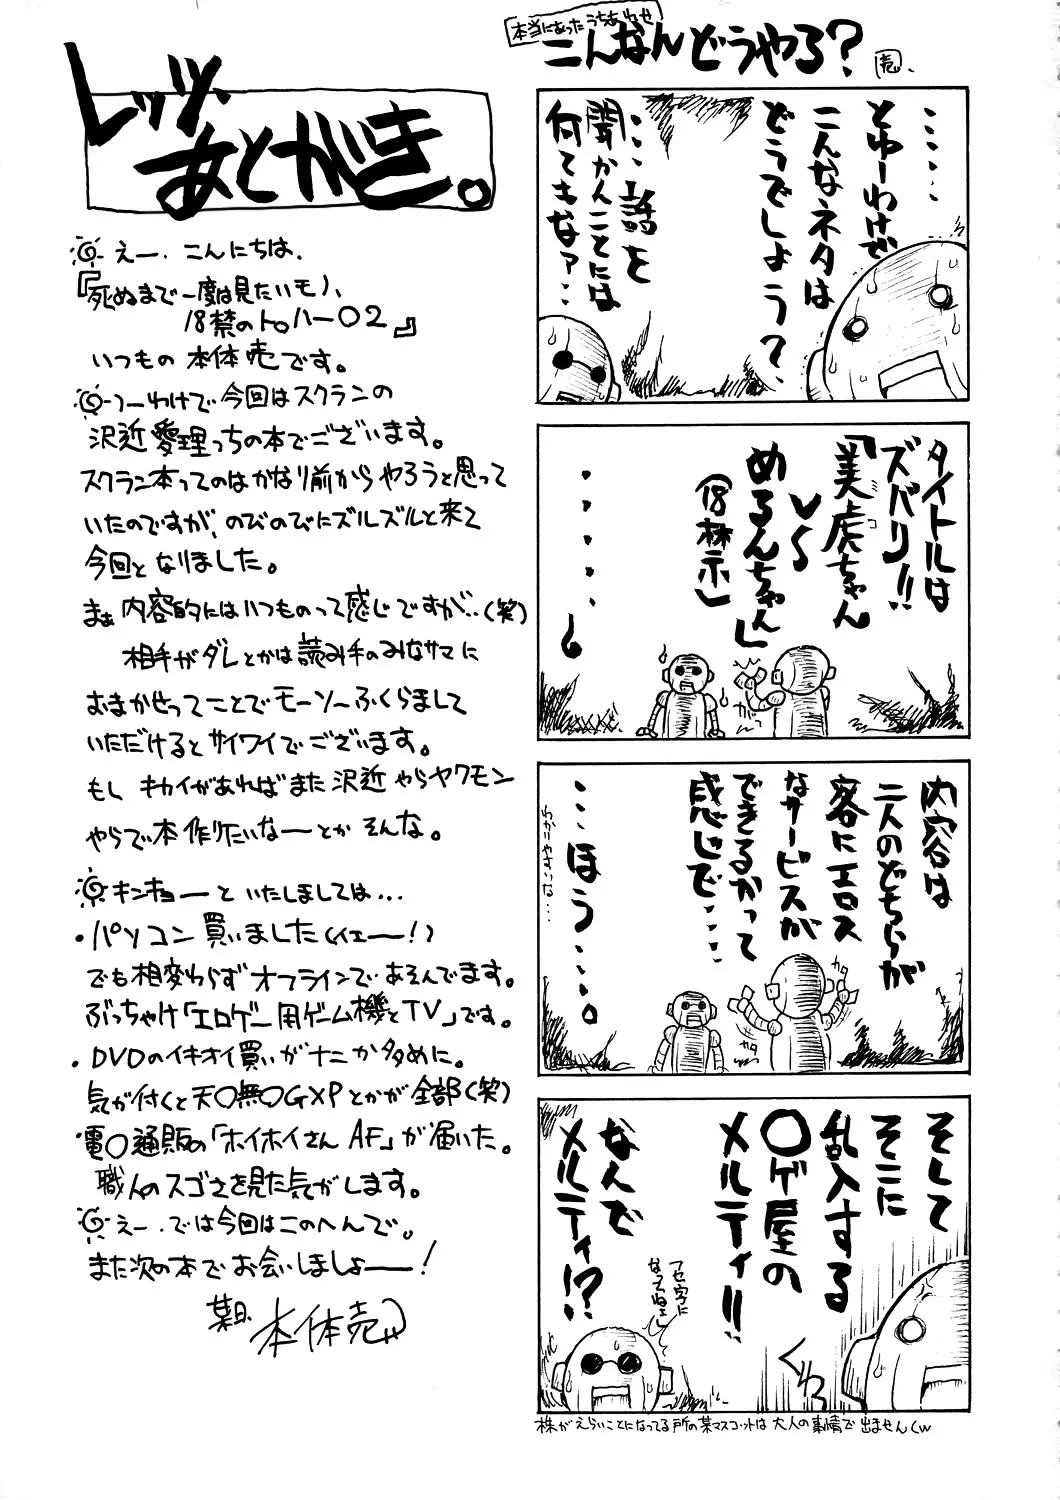 レッツ、
あとがき。
えー、こんにちは、
『死ぬまで一度は見たいモノ、
18禁のトロハー02』
いつもの 本体売です。
つーわけで今回はスクランの
沢近愛理っちの本でございます。
スクラン本ってのはかなり前からやろうと思って
いたのですが、のびのびにズルズルと来て
今回となりました。
まぁ 内容的にはいつものって感じですが‥(笑)
相手がダレとかは読み手のみなサマに
おまかせってことでモーソーふくらまして
いただけるとサイワイでございます。
もし キカイがあればまた沢近やらヤクモン
やらで本作りたいなーとか そんな。
キンキョーといたしましては…
・パソコン買いました(イエー!)
でも相変わらずオフラインであそんでます。
ぶっちゃけ「エロゲー用ゲーム機とTV」です。
・DVDのイキオイ買いがナニか多めに。
気が付くと天〇無〇GXPとかが全部(笑)
電〇通販の「ホイホイさんAF」が届いた。
職人のスゴさを見た気がします。
えー、では今回はこのへんで。
また次の本でお会いしましょー!
本体売
本当にあったうちあわせ
こんなんどうやる?
売
‥‥‥
とゆーわけで
こんなネタは
どうでしょう?
‥‥話を
聞かんことには
何てもなァ…
タイトルは
ズバリ!!
「美虎ちゃん
コ
VS
めるんちゃん」
(18禁)
・・・・・・
内容は
二人のどちらが
客にエロス
なサービスが
できるかって
感じで・・・・
・・・ほう・・・・。
わかりやすいな…
ガッ
カタ
カタ
そして
そこに
乱入する
〇ゲ屋の
メルティ!!
なんで
メルティ!?
フセ字に
なってねェし
ぐわっ
株がえらいことになってる所の某マスコットは 大人の事情で 出ませんくw